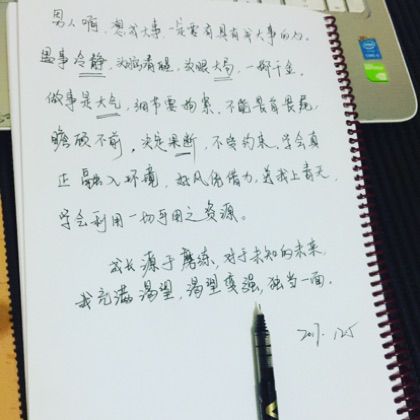 男人啊，想成大事一定要有具有成大事的
遇事冷静，头脑清醒，放眼大局，一掷千金，
做事是大气，细节要拘索，不能畏首畏尾，
瞻顾不前，决定果断，不受约束，学会真
正融入环境，好风凭借力，送我上青天，
学会利用一切可用之资源。
成长源于磨练，对于未知的未来，
我充满渴望，渴望变强，独当一面。
2017.1.25
intel